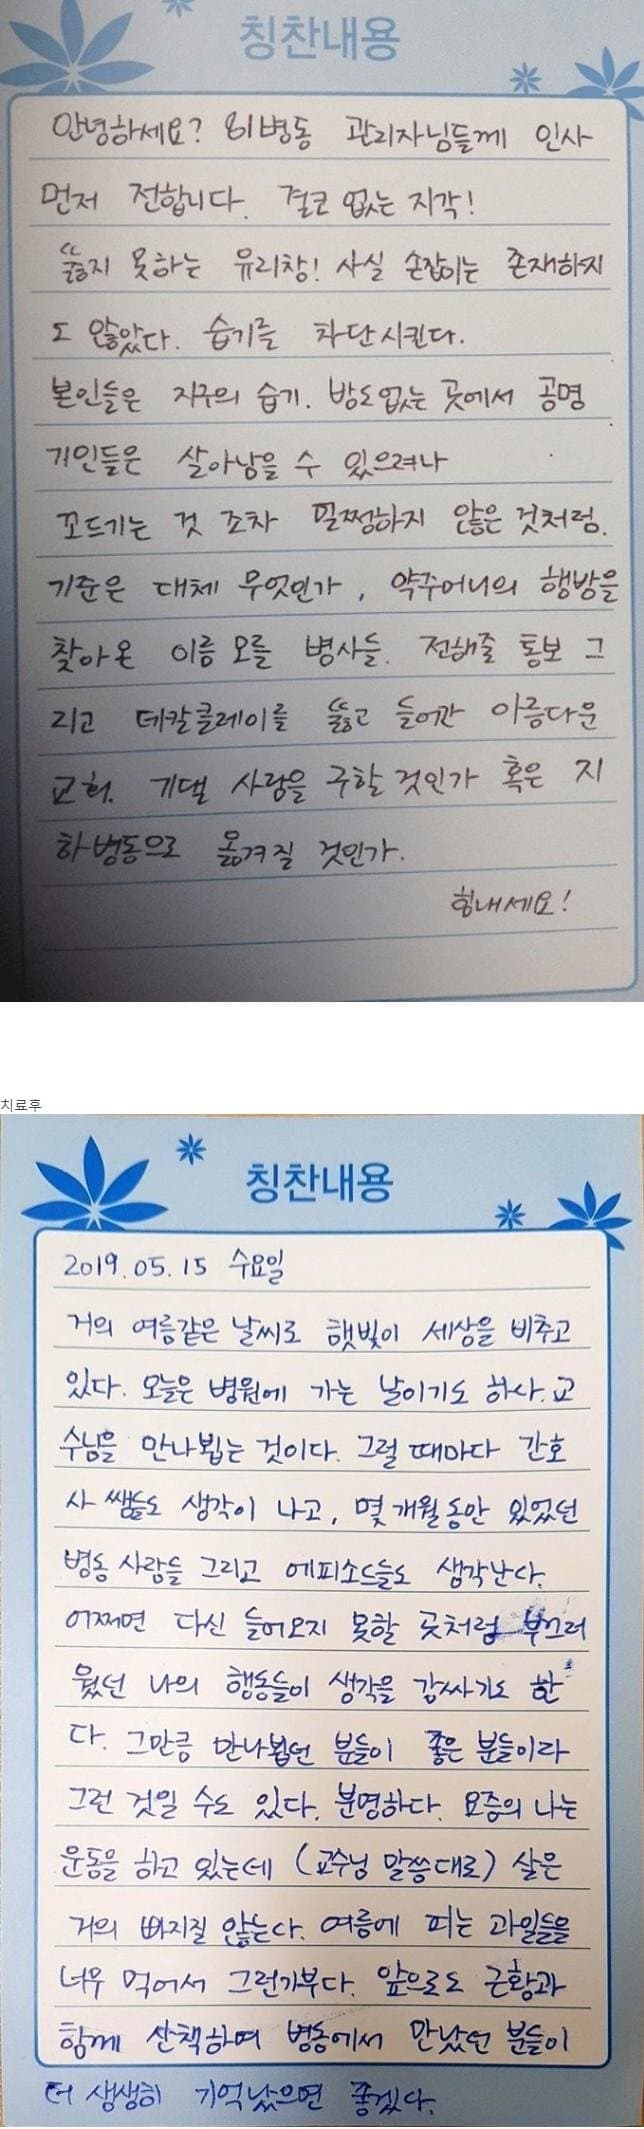 칭찬내용
안녕하세요? 81병동 관리자님들께 인사
먼저 전합니다. 결코 없는 지각!
"뚫지 못하는 유리창! 사실 손잡이는 존재하지
도 않았다. 습기를 차단시킨다.
본인들은 지구의 습기. 방도없는 곳에서 공명
기인들은 살아남을 수 있으려나
꼬드기는 것 조차 멀쩡하지 않은 것처럼.
기준은 대체 무엇인가, 약주머니의 행방을
찾아온 이름 모를 병사들. 전해줄 통보 그
리고 데칼클레이를 뚫고 들어간 아름다운
교회. 기댈 사랑을 구할 것인가 혹은 지
하병동으로 옮겨질 것인가.
힘내세요!
치료후
칭찬내용
2019.05.15 수요일
거의 여름같은 날씨로 햇빛이 세상을 비추고
있다. 오늘은 병원에 가는 날이기도 하다. 교
수님을 만나뵙는 것이다. 그럴 때마다 간호
사 쌤들도 생각이 나고, 몇 개월동안 있었던
병동 사람들 그리고 에피소드들도 생각난다.
어쩌면 다신 들어오지 못할 곳처럼 부끄러
웠던 나의 행동들이 생각을 감싸기도 한
다. 그만큼 만나뵙던 분들이 좋은 분들이라
그런 것일 수도 있다. 분명하다. 요즘의 나는
운동을 하고 있는데 (교수님 말씀대로) 살은
거의 빠지질 않는다. 여름에 피는 과일들을
너무 먹어서 그런가부다. 앞으로도 근황과
함께 산책하며 병동에서 만났던 분들이
더 생생히 기억났으면 좋겠다.